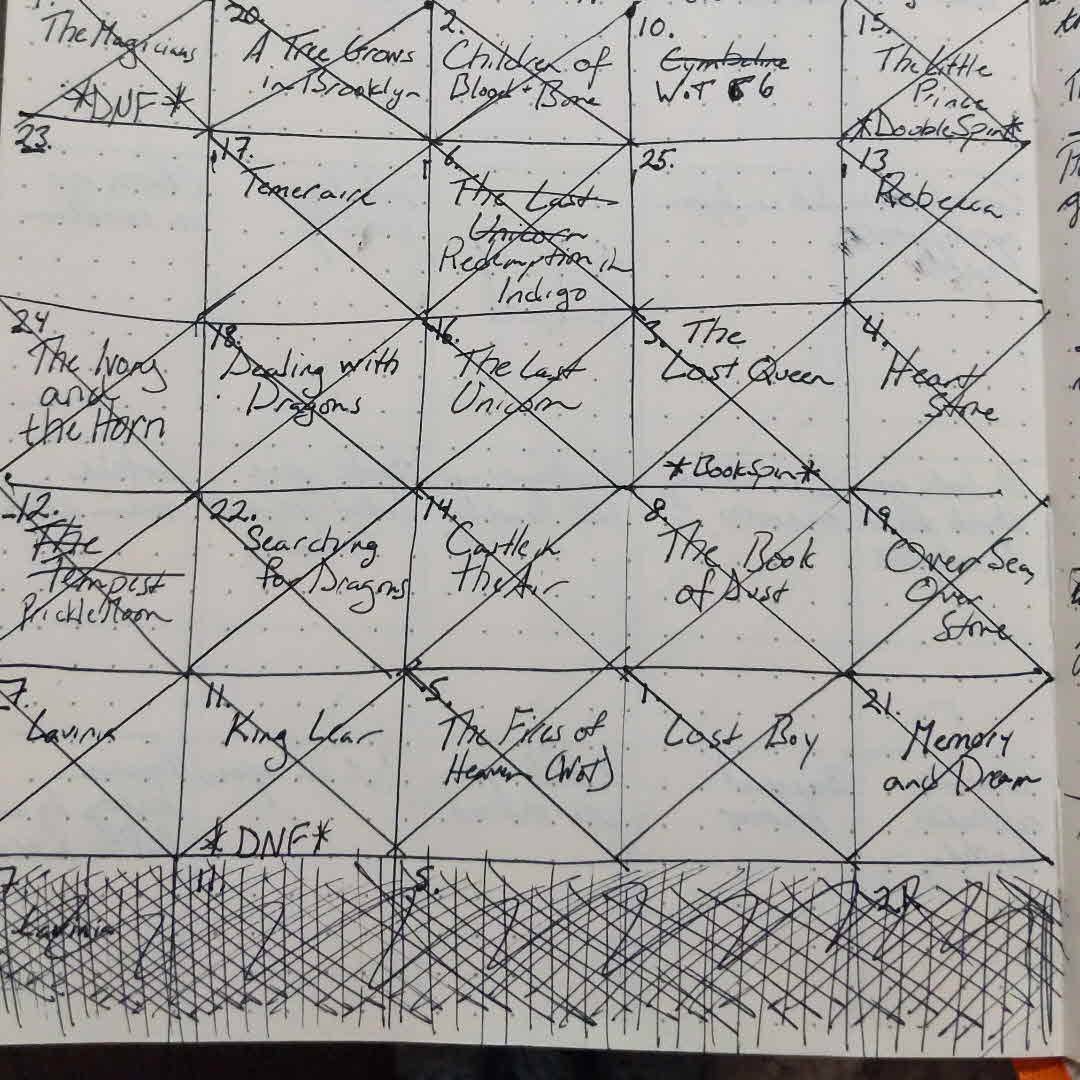 20.
2.
10.
15.
The Magicians
*DNF*
A Tree Grows
in Brooklyn
Children of
Blood + Bone
Cymbeline
WoT 6
The Little
Prince
*DoubleSpin*
23.
17.
Temeraire
6.
The Last
Unicorn
Redemption in
Indigo
25.
13.
Rebecca
24
The Ivory
and
the Horn
18.
Dealing with
Dragons
16.
The Last
Unicorn
3.
The
Lost Queen
*BookSpin*
4.
Heart
Stone
12.
The
Tempest
Prickle Moon
22.
Searching
for Dragons
14.
Castle in
the Air
8.
The Book
of Dust
19.
Over Sea,
Over
Stone
7.
Lavinia
11.
King Lear
*DNF*
5.
The Fires of
Heaven (WoT)
1.
Lost Boy
21.
Memory
and Dream
7
Lavinia
11.
5.